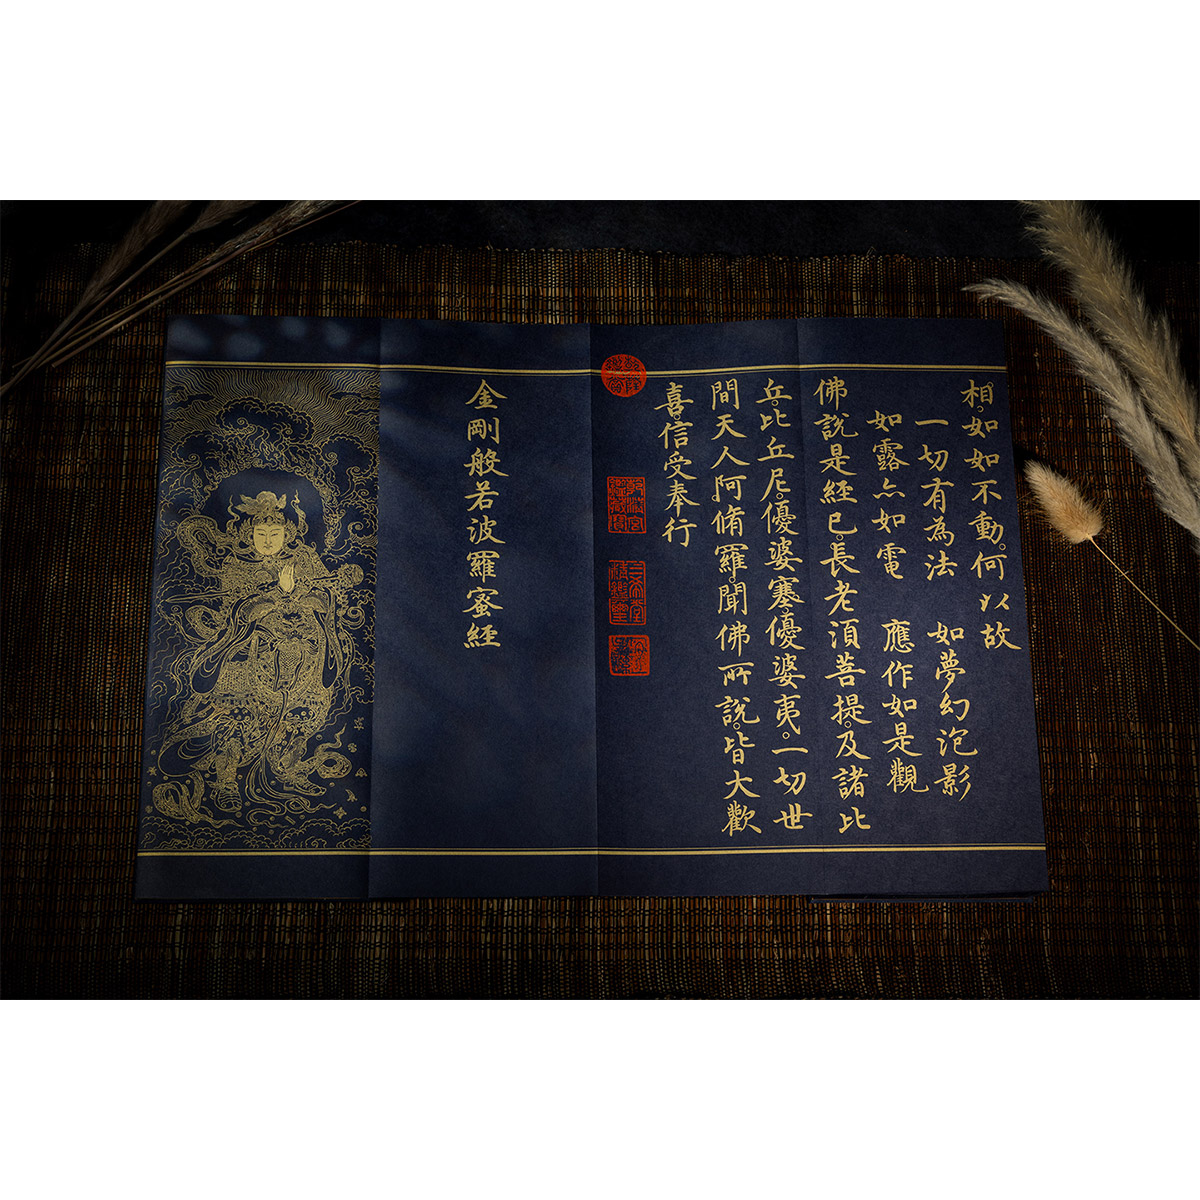 相。如如不動。何以故
一切有為法　如夢幻泡影
如露亦如電　應作如是觀
佛說是經已。長老湏菩提。及諸比
丘。比丘尼。優婆塞。優婆夷。一切世
間天人阿脩羅。聞佛所說。皆大歡
喜。信受奉行
乾清宮鑑藏寶
三希堂精鑑璽
金剛般若波羅蜜經